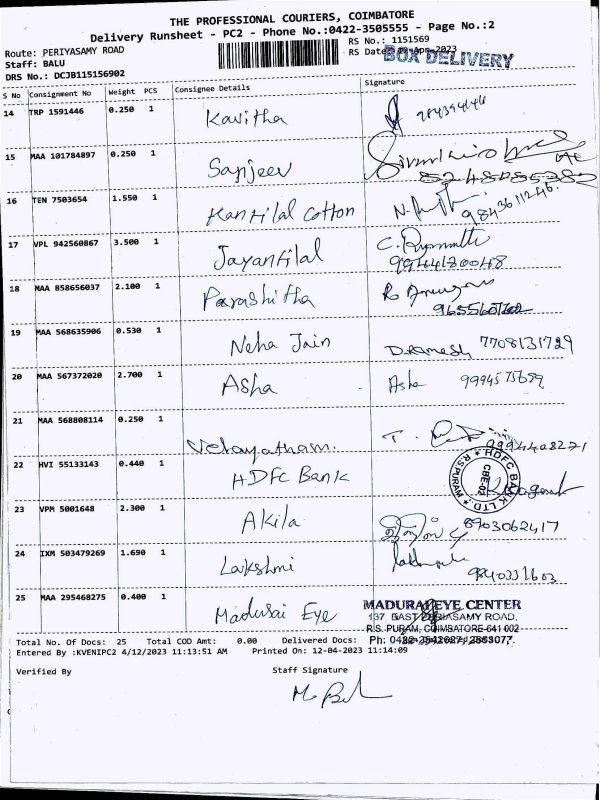 THE PROFESSIONAL COURIERS, COIMBATORE
Delivery Runsheet - PC2 - Phone No.:0422-3505555 - Page No.:2
Route: PERIYASAMY ROAD
RS No.: 1151569
Staff: BALU
RS Date: 12-Apr-2023
BOX DELIVERY
DRS No.: DCJB115156902
S No Consignment No Weight PCS Consignee Details Signature
14 TRP 1591446 0.250 1 Kavitha
15 MAA 101784897 0.250 1 Sanjeev
16 TEN 7503654 1.550 1 Kantilal Cotton 9843611246
17 VPL 942560867 3.500 1 Jayantilal
18 MAA 858656037 2.100 1 Parashitha
19 MAA 568635906 0.530 1 Neha Jain D.Ramesh 7708131729
20 MAA 567372020 2.700 1 Asha Asha
21 MAA 568808114 0.250 1 Velayatham. 9994408271
22 HVI 55133143 0.440 1 HDFC Bank
HDFC BANK LTD. R S PURAM CBE-02
23 VPM 5001648 2.300 1 Akila 8903062417
24 IXM 503479269 1.690 1 Lakshmi
25 MAA 295468275 0.400 1 Madurai Eye
MADURAI EYE CENTER
137, EAST PERIASAMY ROAD,
R.S. PURAM, COIMBATORE-641 002
Total No. Of Docs: 25 Total COD Amt: 0.00 Delivered Docs:
Entered By :KVENIPC2 4/12/2023 11:13:51 AM Printed On: 12-04-2023 11:14:09
Verified By Staff Signature